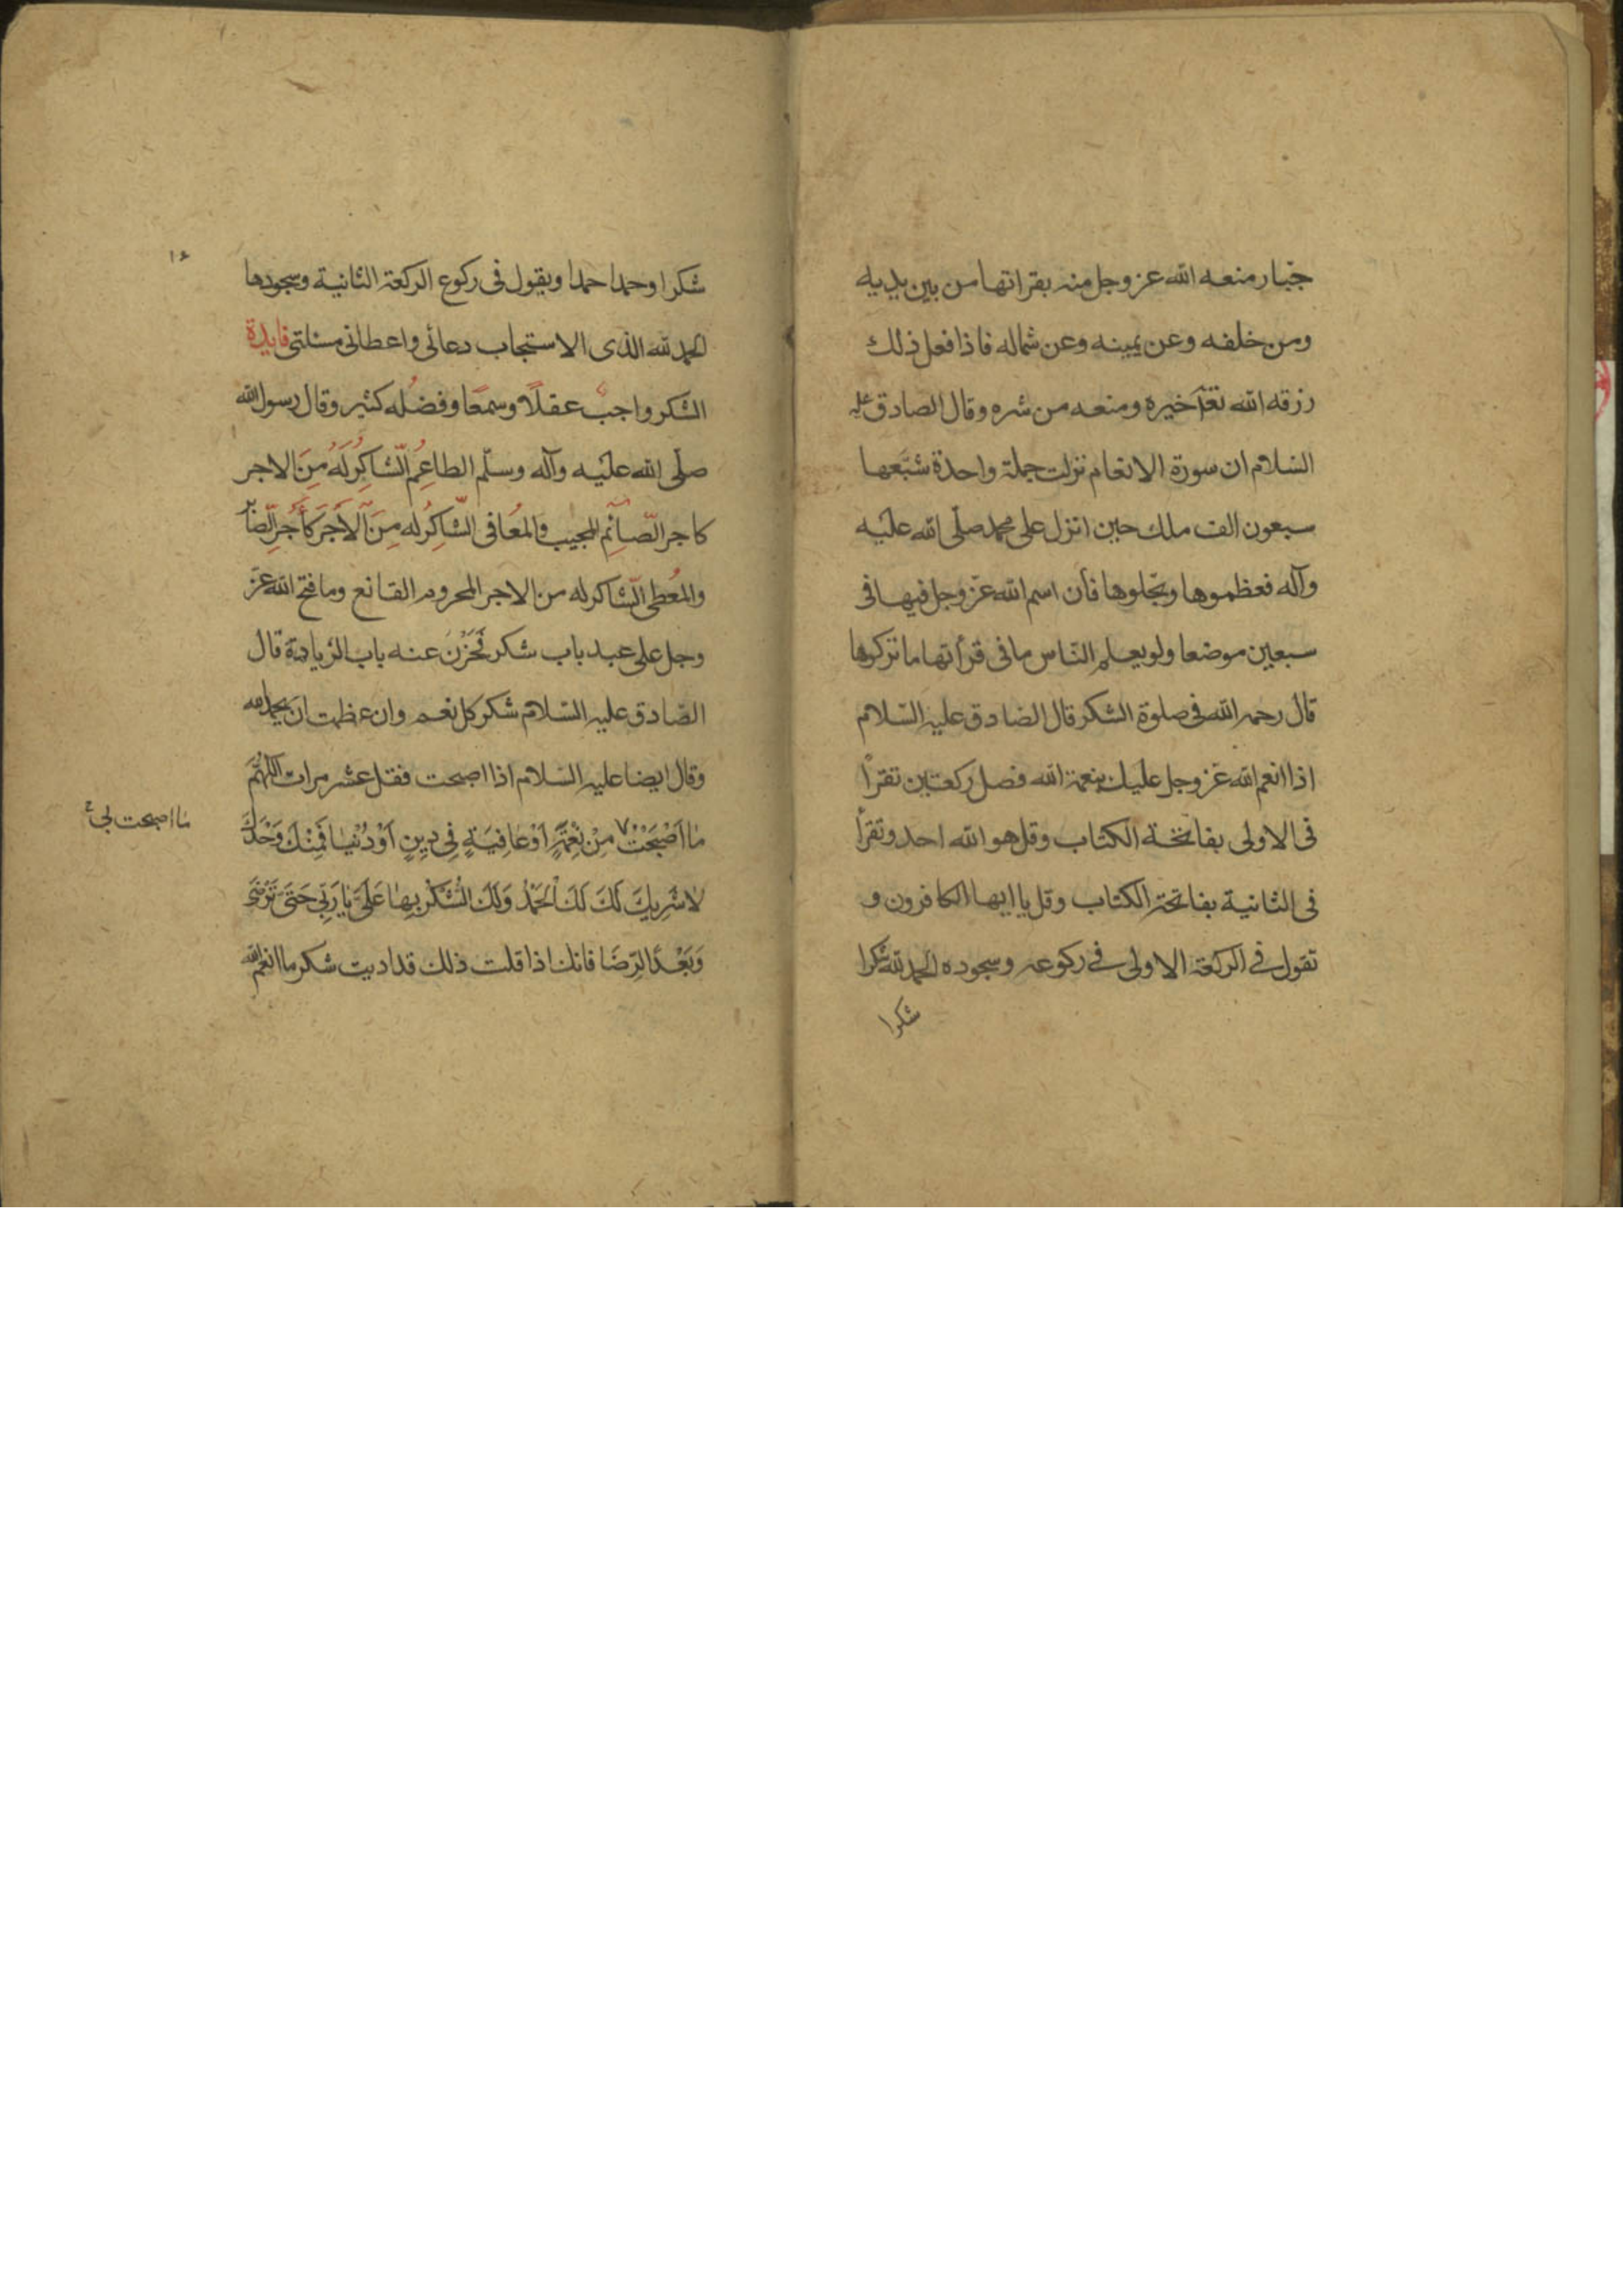 جبار منعه الله عز وجل منه بقراتها من بين يديه
ومن خلفه وعن يمينه وعن شماله فاذا فعل ذلك
رزقه الله تعا خيره ومنعه من شره وقال الصادق عليه
السلام ان سورة الانعام نزلت جملة واحدة شيّعها
سبعون الف ملك حين انزل على محمد صلّى الله عليه
وآله فعظموها وبجّلوها فأن اسم الله عزّ وجل فيها فى
سبعين موضعا ولو يعلم النّاس ما فى قرأتها ما تركوها
قال رحمه الله فى صلوة الشكر قال الصادق عليه السّلام
اذا انعم الله عزّ وجل عليك بنعمة الله فصل ركعتين تقرأ
فى الاولى بفاتحة الكتاب وقل هو الله احد وتقرأ
فى الثانية بفاتحة الكتاب وقل يا ايها الكافرون و
تقول فى الركعة الاولى فى ركوعه وسجوده الحمد لله شكرا
شكرا
١٤
شكرا وحمدا حمدا ويقول فى ركوع الركعة الثانية وسجودها
الحمد لله الذى الاستجاب دعائى واعطانى مسئلتى فايدة
الشكر واجب عقلًا وسمعًا وفضله كثير وقال رسول الله
صلّى الله عليه وآله وسلّم الطاعِمُ الشّاكِرُ لَهُ مِنَ الاجر
كاجر الصّائِم المجيب والمُعافى الشّاكِرُ له مِنَ الاَجَر كَاَجْرِ الصّا
والمُعطى الشّاكر له من الاجر المحروم القانع وما فتح الله عزّ
وجل على عبد باب شكر فَخَزَنَ عنه باب الزيادة قال
الصّادق عليه السّلام شكر كل نعم وان عظمت ان
وقال ايضا عليه السّلام اذا اصبحت فقل عشر مرات اللّهُمَّ
مٰا اَصْبَحَتْ مِنْ نِعْمَةٍ اَوْ عٰافِيَةٍ فِى دِينٍ اَوْ دُنْيٰا فَمِنْكَ وَحْدَكَ
لاٰ شَرِيكَ لَكَ لَكَ الْحَمْدُ وَلَكَ الشُّكْرُ بِهٰا عَلَىَّ يٰا رَبِّى حَتّىٰ تَرْضىٰ
وَبَعْدَ الرِّضَا فانك اذا قلت ذلك قد اديت شكر ما انعم الله
مٰا اصبحت بى